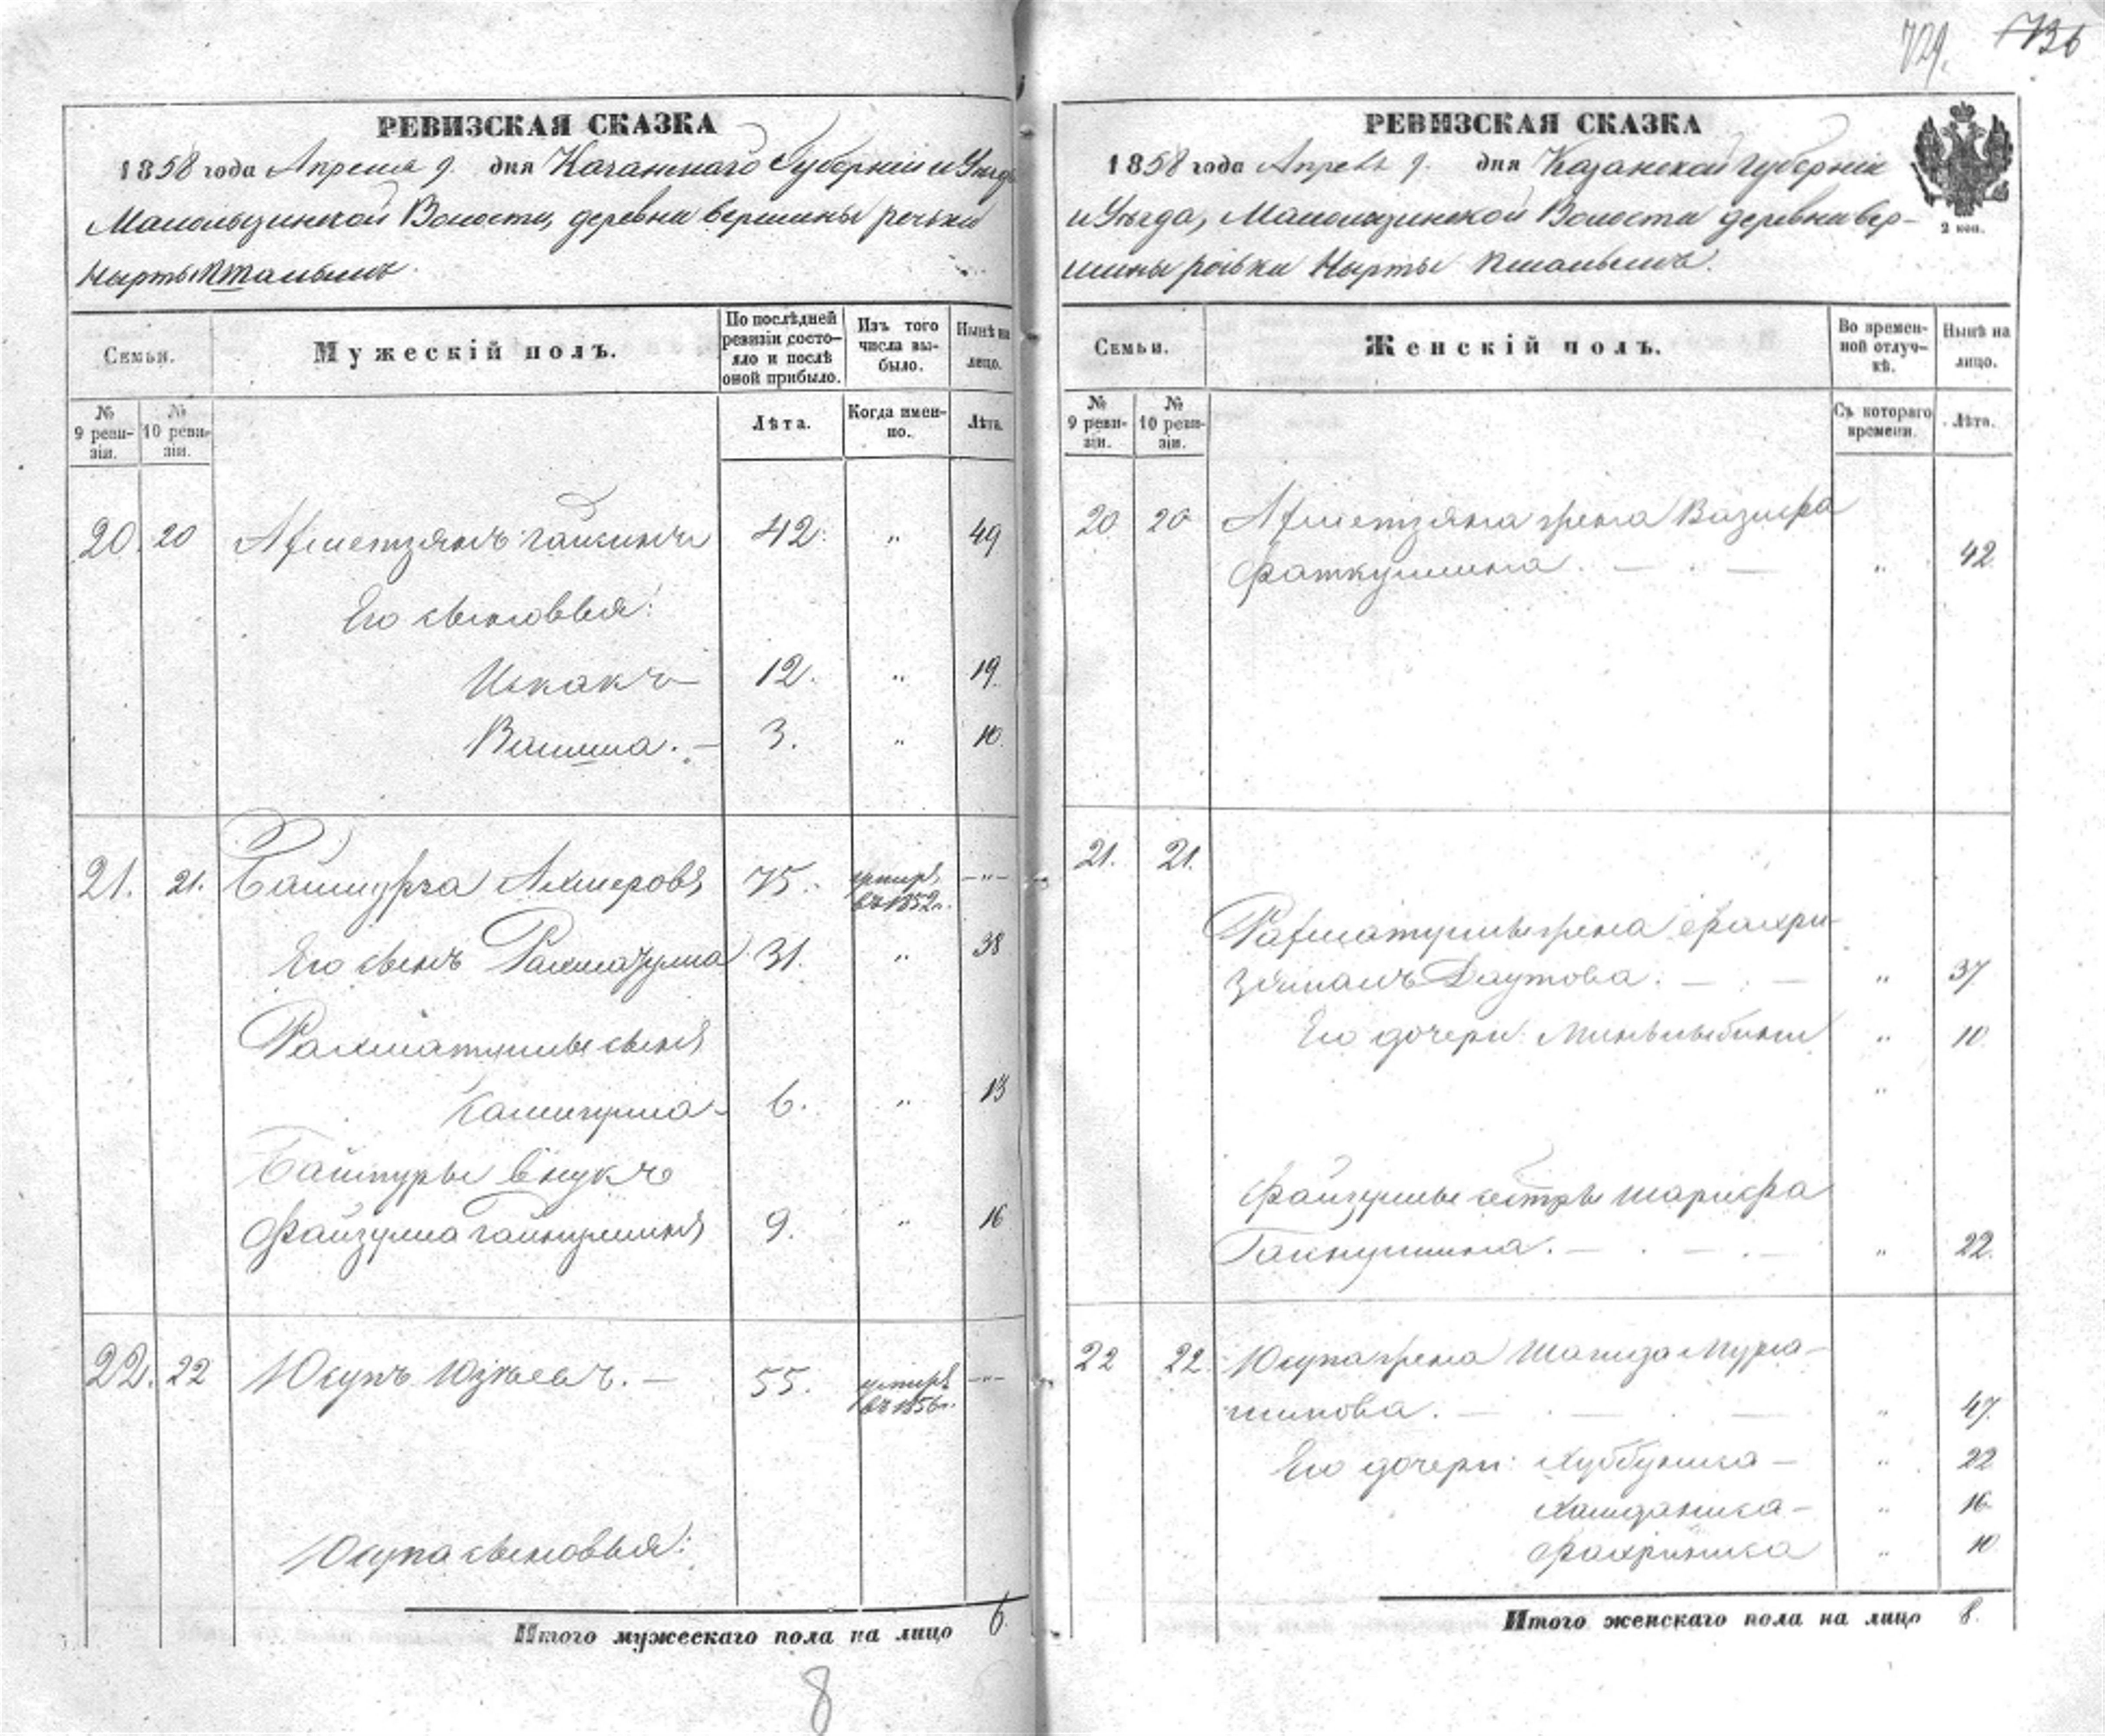 729. 736
РЕВИЗСКАЯ СКАЗКА
1858 года Апреля 9. дня Казанской Губерніи и Уѣзда
Малолызинской Волости, деревни вершины речьки
Нырты Кшалышъ.
Семьи.
Мужескій полъ.
По послѣдней ревизіи состояло и послѣ оной прибыло.
Изъ того числа выбыло.
Нынѣ на лицо.
№ 9 ревизіи.
№ 10 ревизіи.
Лѣта.
Когда именно.
Лѣта.
20. 20 Ахметзянъ 42. " 49
Его сыновья:
Искакъ 12. " 19.
Валиша. 3. " 10.
21. 21. Башмурза Ахмеровъ 75. умеръ въ 1852 г. —"—
Его сынъ Рахматулла 31. " 38
Рахматуллы сынъ
6. " 13
внукъ
Файзулла Гайнуллинъ 9. " 16
22. 22 Юсупъ 55. умеръ въ 1856 г. —"—
Юсупа сыновья:
Итого мужескаго пола на лицо 6.
8
РЕВИЗСКАЯ СКАЗКА
1858 года Апреля 9. дня Казанской Губерніи
и Уѣзда, Малолызинской Волости деревни вер-
шины рѣчьки Нырты Кшалышъ.
2 коп.
Семьи.
Женскій полъ.
Во временной отлучкѣ.
Нынѣ на лицо.
№ 9 ревизіи.
№ 10 ревизіи.
Съ котораго времени.
Лѣта.
20 20 Ахметзяна жена Вазифа
Фаткуллина. " 42
21. 21.
Рахматуллы жена Фахри-
зямалъ Даутова. " 37
Его дочери: " 10
"
Файзуллы сестра Шарифа
Гайнуллина. " 22.
22 22. Юсупа жена Шагида Мурта-
зинова. " 47.
Его дочери: Хуббуниса " 22
" 16.
Фахриниса " 10
Итого женскаго пола на лицо 8.